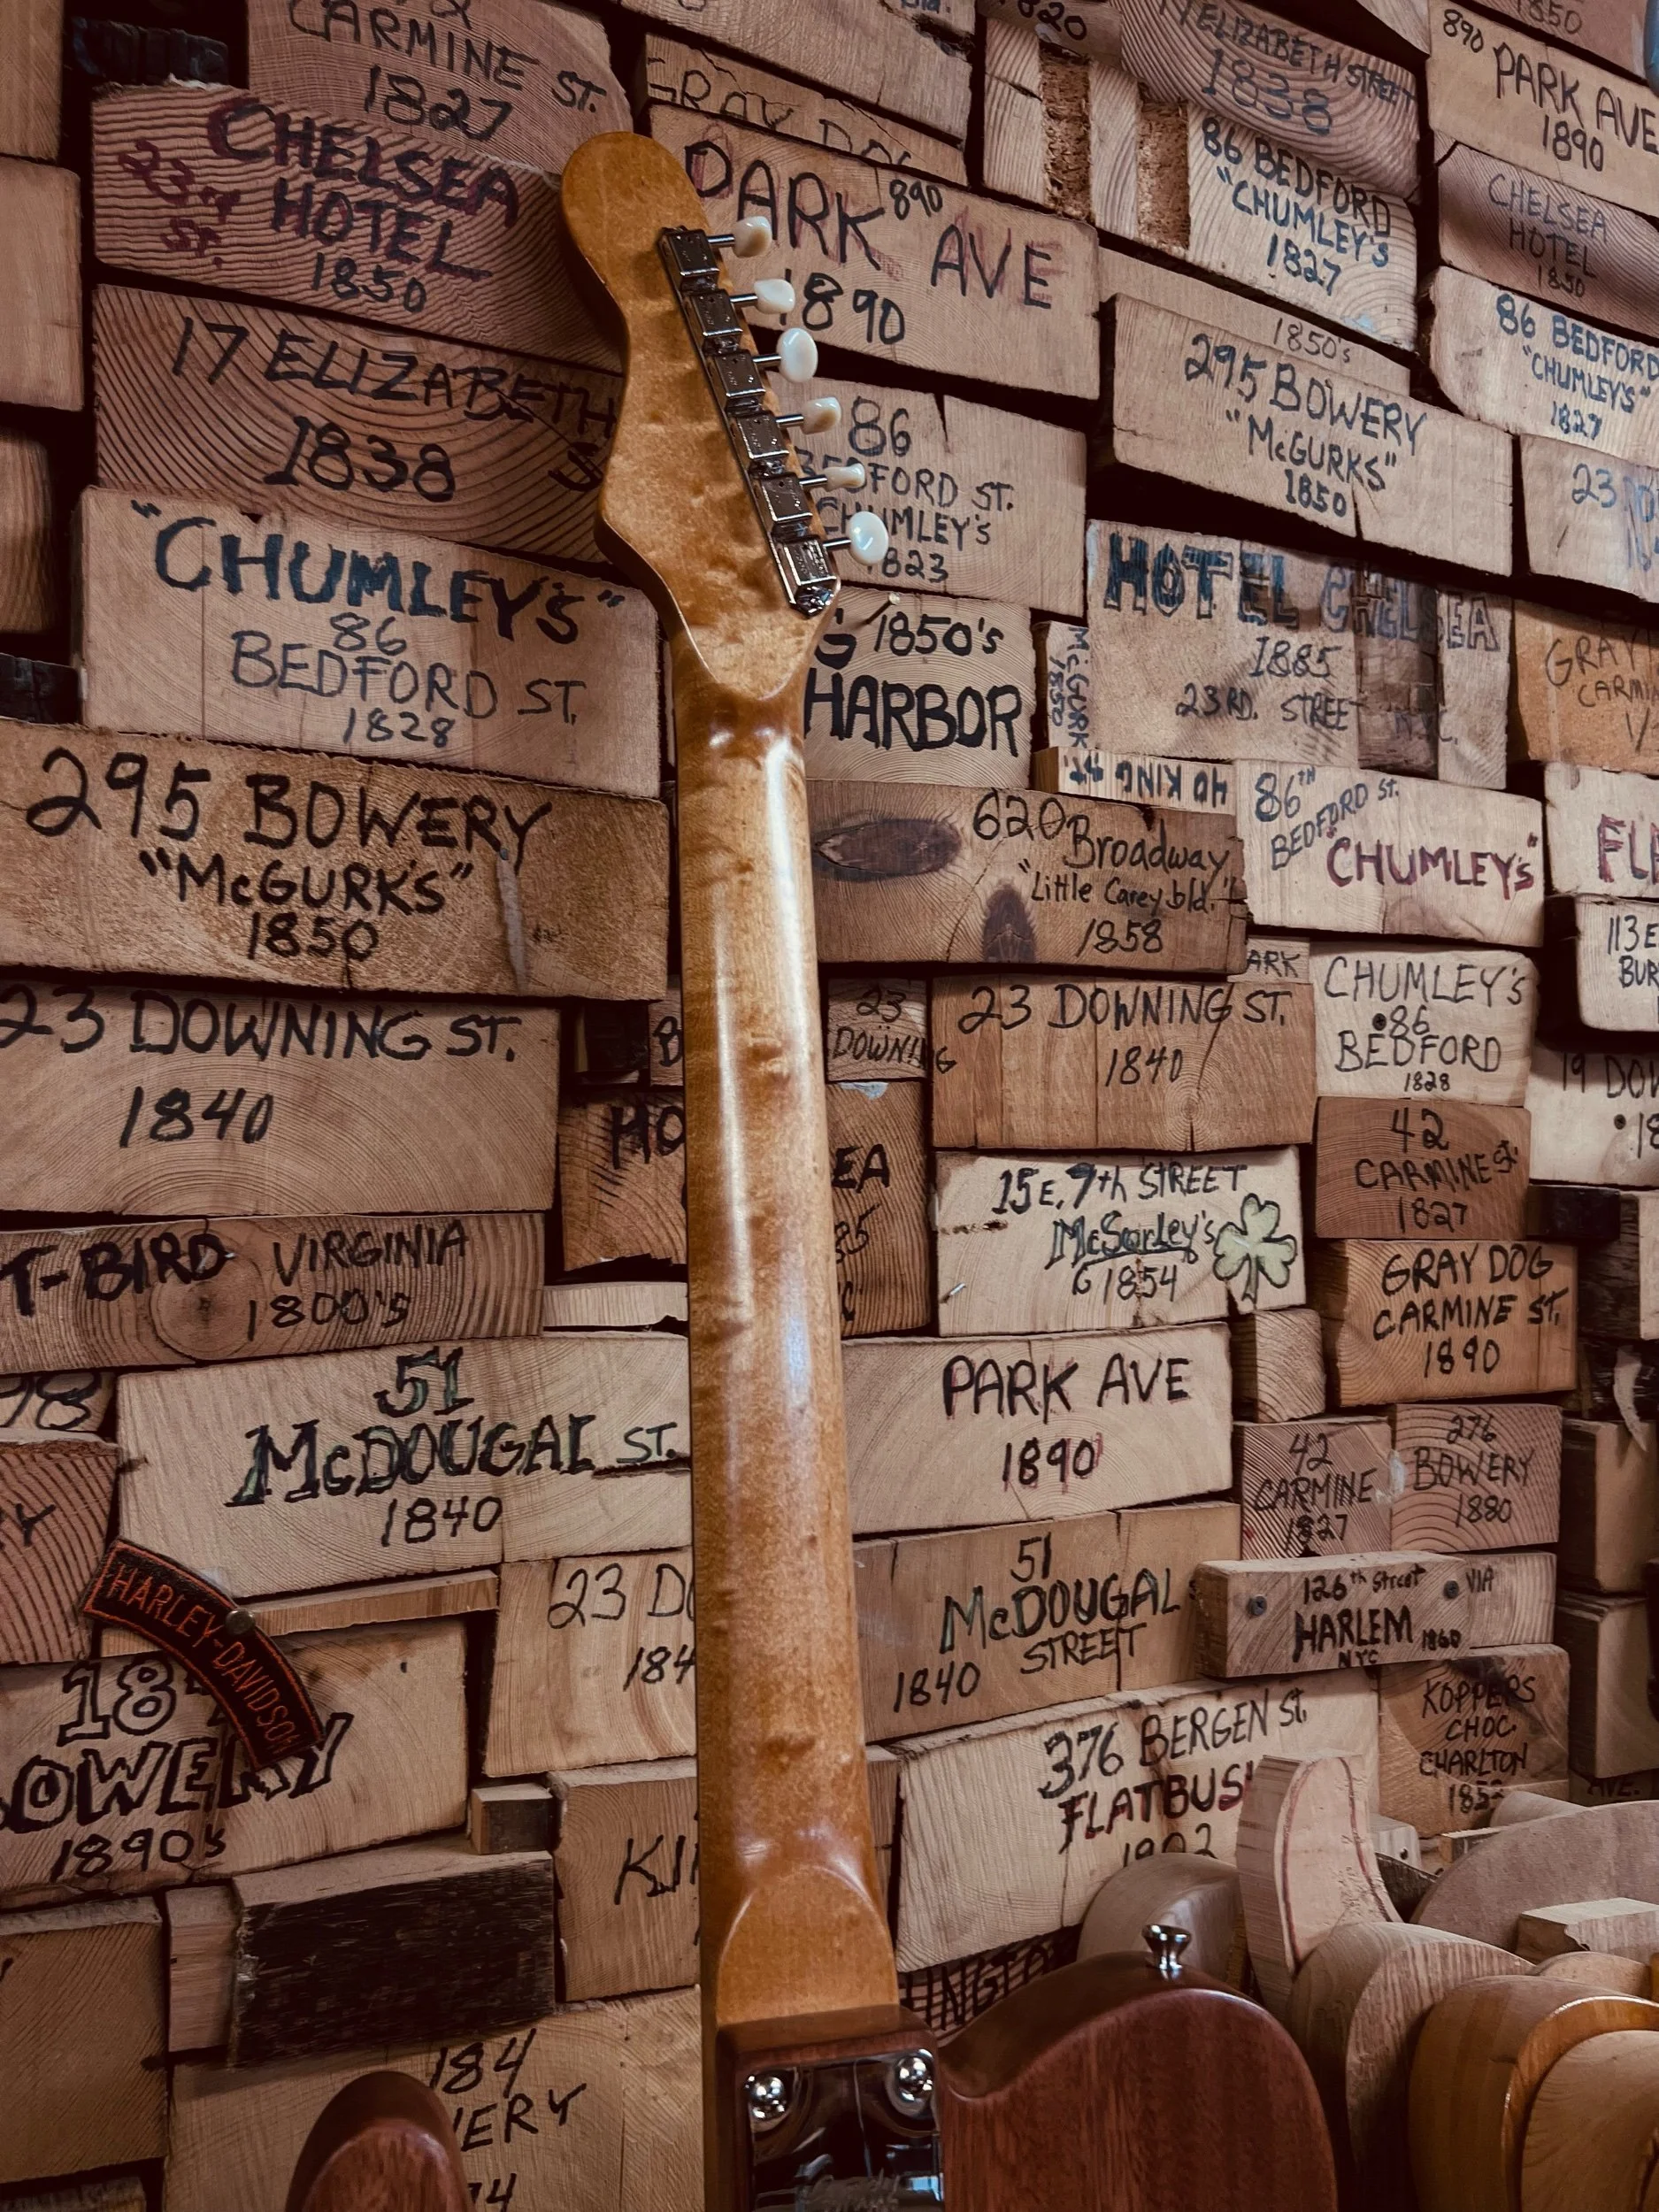 CARMINE ST.
1827
CHELSEA
23RD ST.
HOTEL
1850
17 ELIZABETH
1838
"CHUMLEY'S"
86
BEDFORD ST.
1828
295 BOWERY
"McGURK'S"
1850
23 DOWNING ST.
1840
T-BIRD VIRGINIA
1800's
51
McDOUGAL ST.
1840
HARLEY-DAVIDSON
1890's
184
GRAY DOG
890
PARK AVE
1890
86
BEDFORD ST.
CHUMLEY'S
1823
1850's
HARBOR
620 Broadway
"Little Carey bld."
1858
23
DOWNING
23 DOWNING ST.
1840
15 E. 7th STREET
McSorley's
1854
PARK AVE
1890
51
McDOUGAL
STREET
1840
376 BERGEN ST.
1820
ELIZABETH STREET
1838
86 BEDFORD
"CHUMLEY'S
1827
1850's
295 BOWERY
"McGURKS"
1850
HOTEL CHELSEA
1885
23RD. STREET N.Y.C.
McGURK
1850
HO KING ST.
86TH
BEDFORD ST.
"CHUMLEY'S"
CHUMLEY'S
86
BEDFORD
1828
42
CARMINE St.
1827
GRAY DOG
CARMINE ST.
1890
42
CARMINE
1827
276
BOWERY
1880
126th Street VIA
HARLEM 1860
NYC
KOPPERS
CHOC.
CHARLTON
1850
890
PARK AVE
1890
CHELSEA
HOTEL
1850
86 BEDFORD
"CHUMLEY'S"
1827
23
GRAY